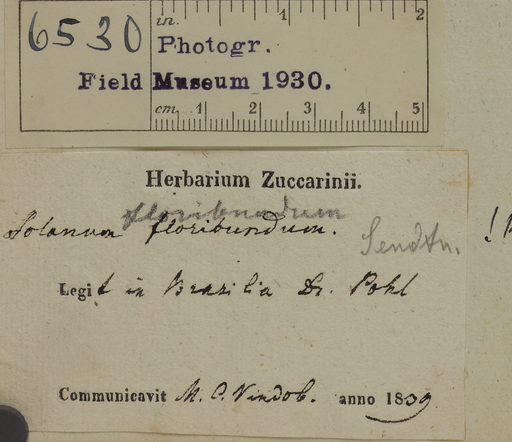 6530
in. 1 2
Photogr.
Field Museum 1930.
cm. 1 2 3 4 5
Herbarium Zuccarinii.
floribundum
Solanum floribundum.
Sendtn.
Legit in Brazilia Dr. Pohl
Communicavit M. C. Vindob. anno 1839